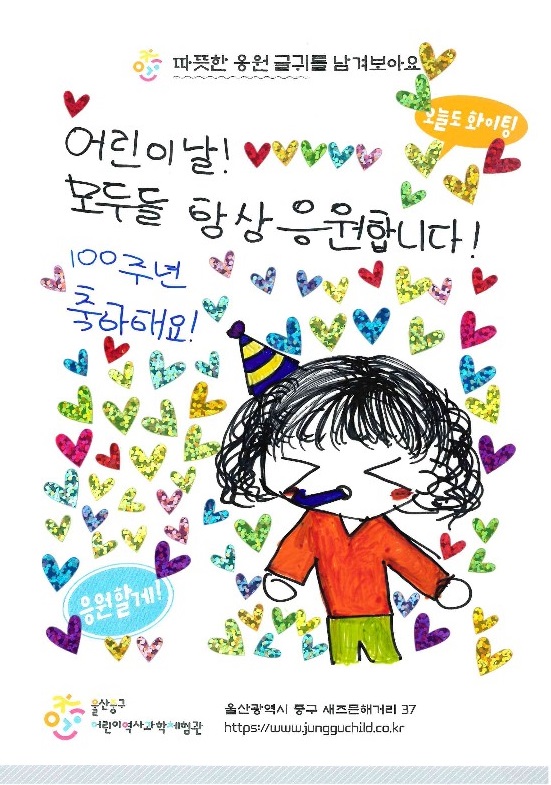 따뜻한 응원 글귀를 남겨보아요
오늘도 화이팅!
어린이날!
모두들 항상 응원합니다!
100주년
축하해요!
응원할게!
울산중구
어린이역사과학체험관
울산광역시 중구 새즈믄해거리 37
https://www.jungguchild.co.kr